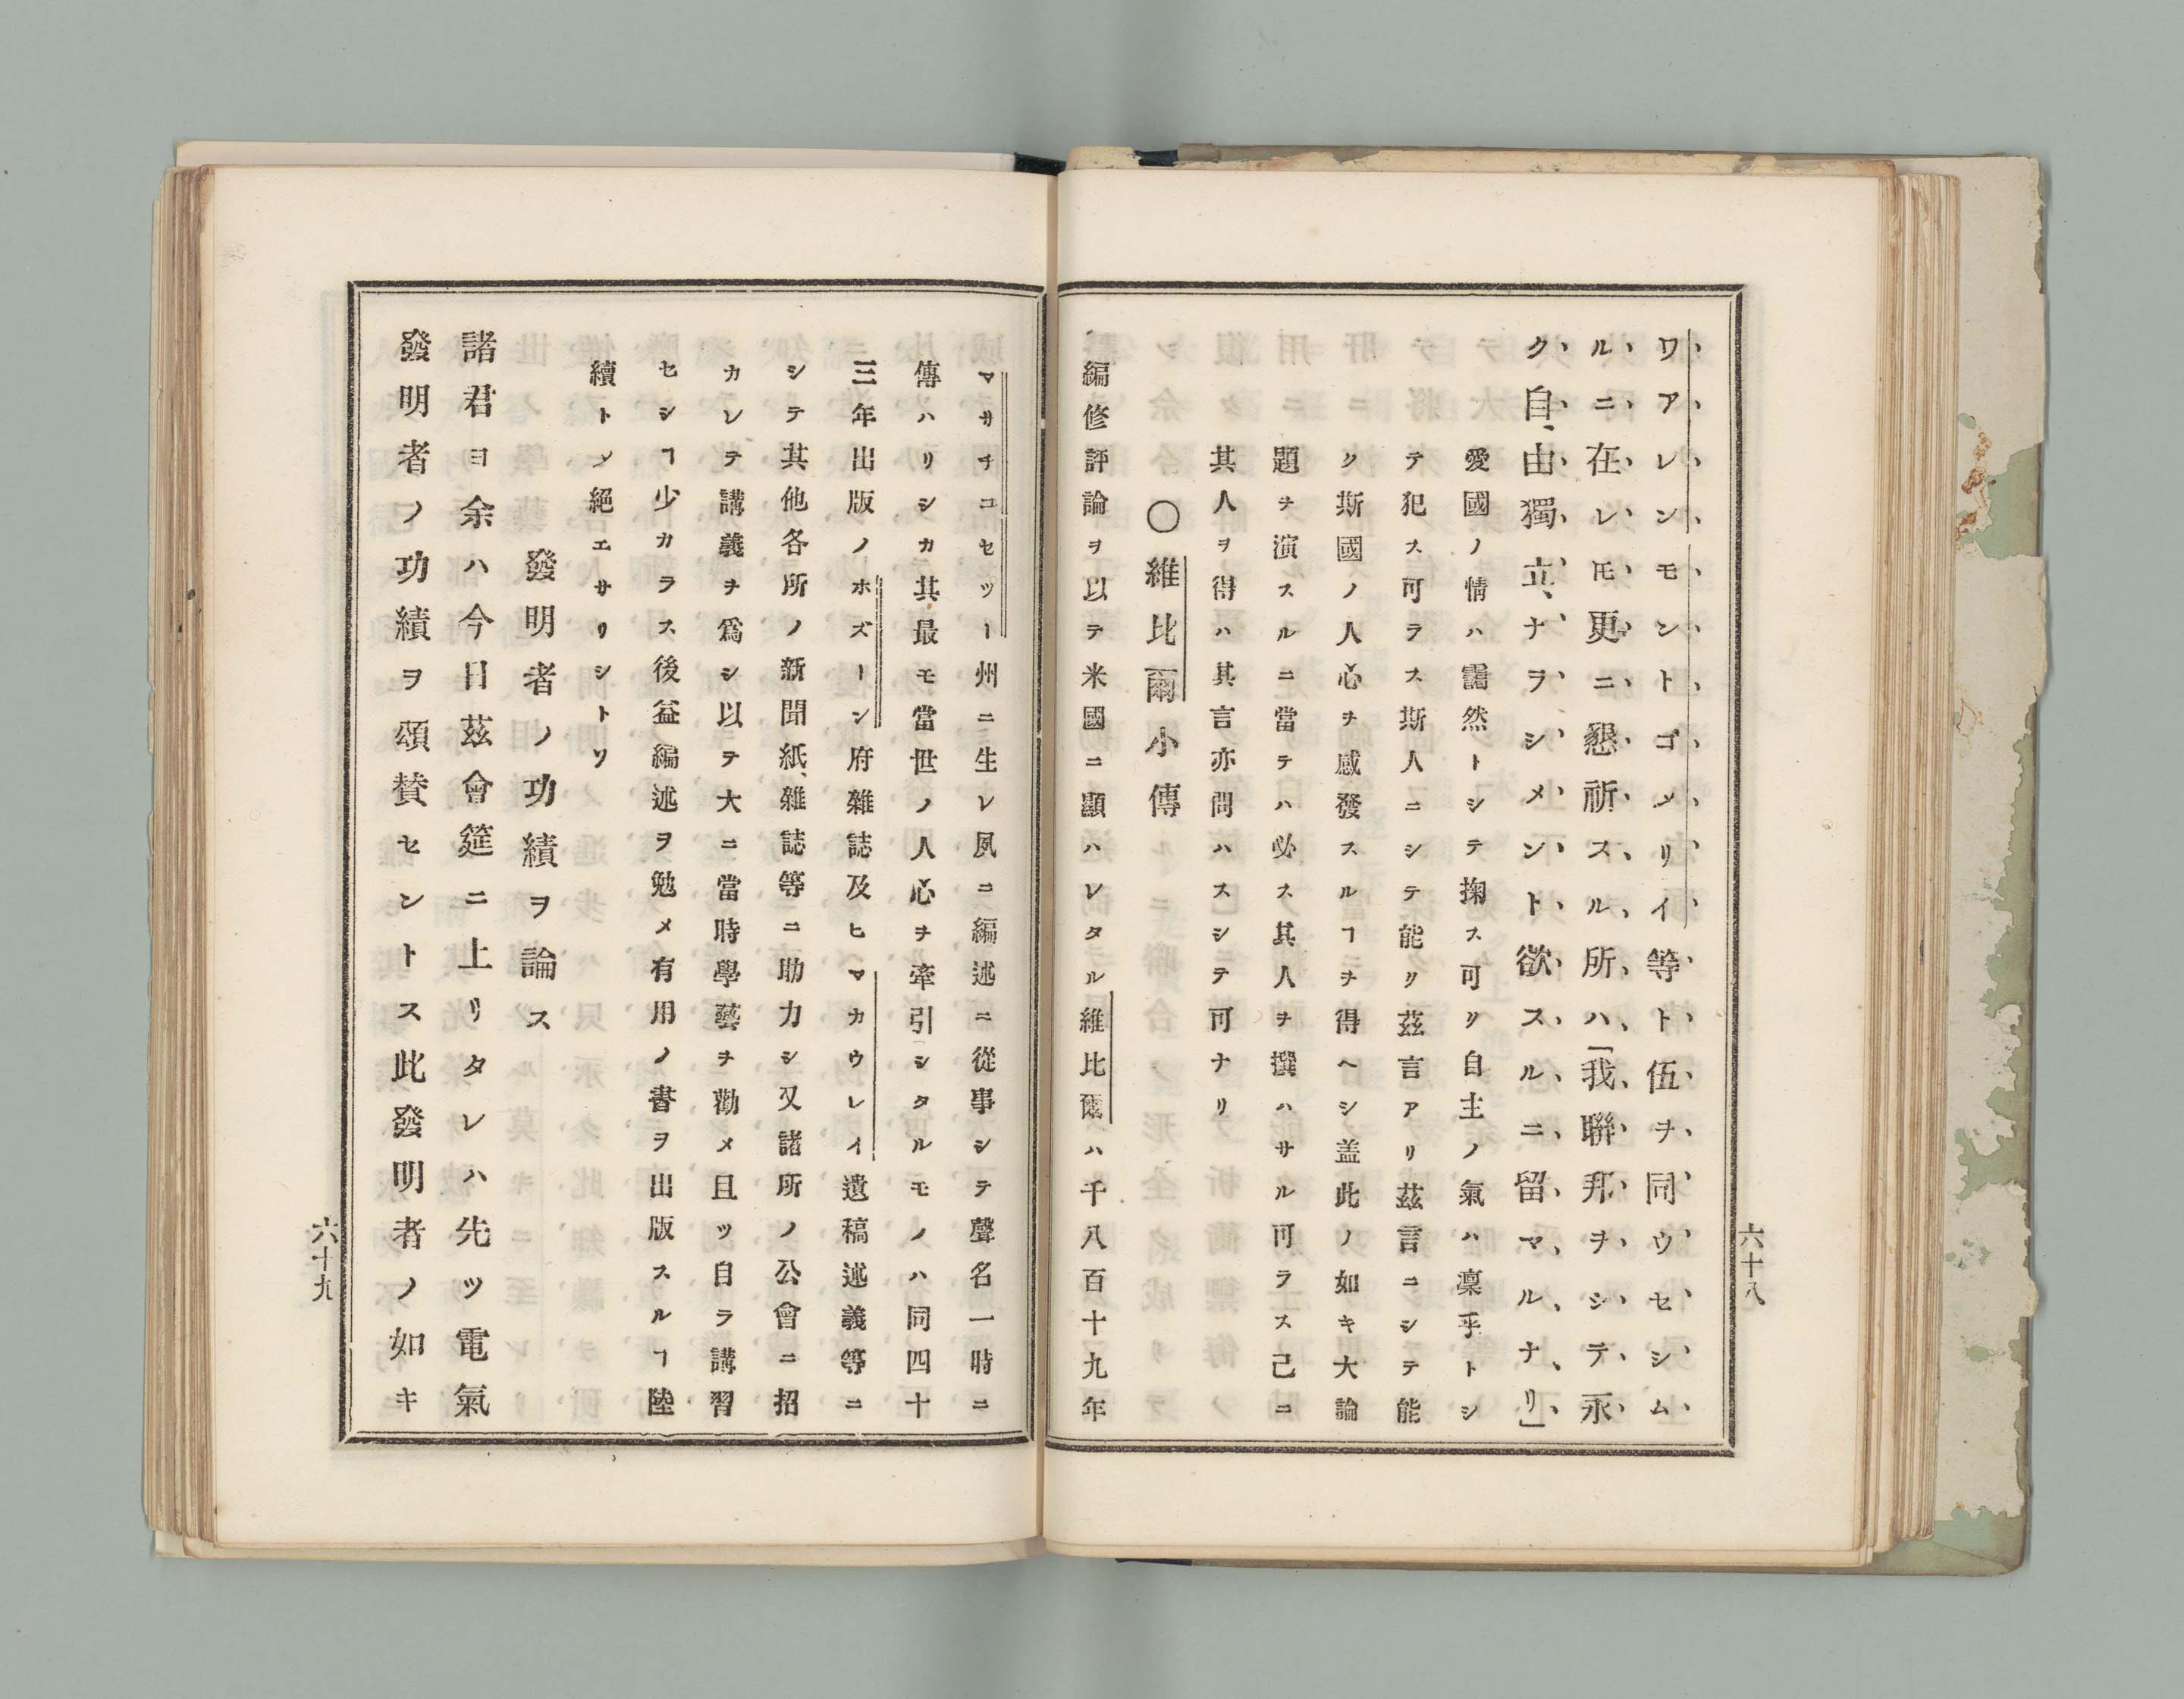 ワアレンモントゴメリイ等ト伍ヲ同ウセシム
ルニ在レモ更ニ懇祈スル所ハ「我聯邦ヲシテ永
ク自由獨立ナヲシメント欲スルニ留マルナリ」
愛國ノ情ハ靄然トシテ掬ス可ク自主ノ氣ハ凜乎トシ
テ犯ス可ラス斯人ニシテ能ク茲言アリ茲言ニシテ能
ク斯國ノ人心ヲ感發スルヿヲ得ヘシ盖此ノ如キ大論
題ヲ演スルニ當テハ必ス其人ヲ撰ハサル可ラス己ニ
其人ヲ得ハ其言亦問ハスシテ可ナリ
〇維比爾小傳
編修評論ヲ以テ米國ニ顯ハレタル維比爾ハ千八百十九年
六十八
マサチユセツー州ニ生レ夙ニ編述ニ從事シテ聲名一時ニ
傳ハリシカ其最モ當世ノ人心ヲ牽引シタルモノハ同四十
三年出版ノホズーン府雜誌及ヒマカウレイ遺稿述義等ニ
シテ其他各所ノ新聞紙、雜誌等ニ助力シ又諸所ノ公會ニ招
カレテ講義ヲ爲シ以テ大ニ當時學藝ヲ勸メ且ツ自ラ講習
セシヿ少カラス後益編述ヲ勉メ有用ノ書ヲ出版スルヿ陸
續トメ絕エサリシトソ
發明者ノ功績ヲ論ス
諸君ヨ余ハ今日茲會筵ニ上リタレハ先ツ電氣
發明者ノ功績ヲ頌賛セントス此發明者ノ如キ
六十九